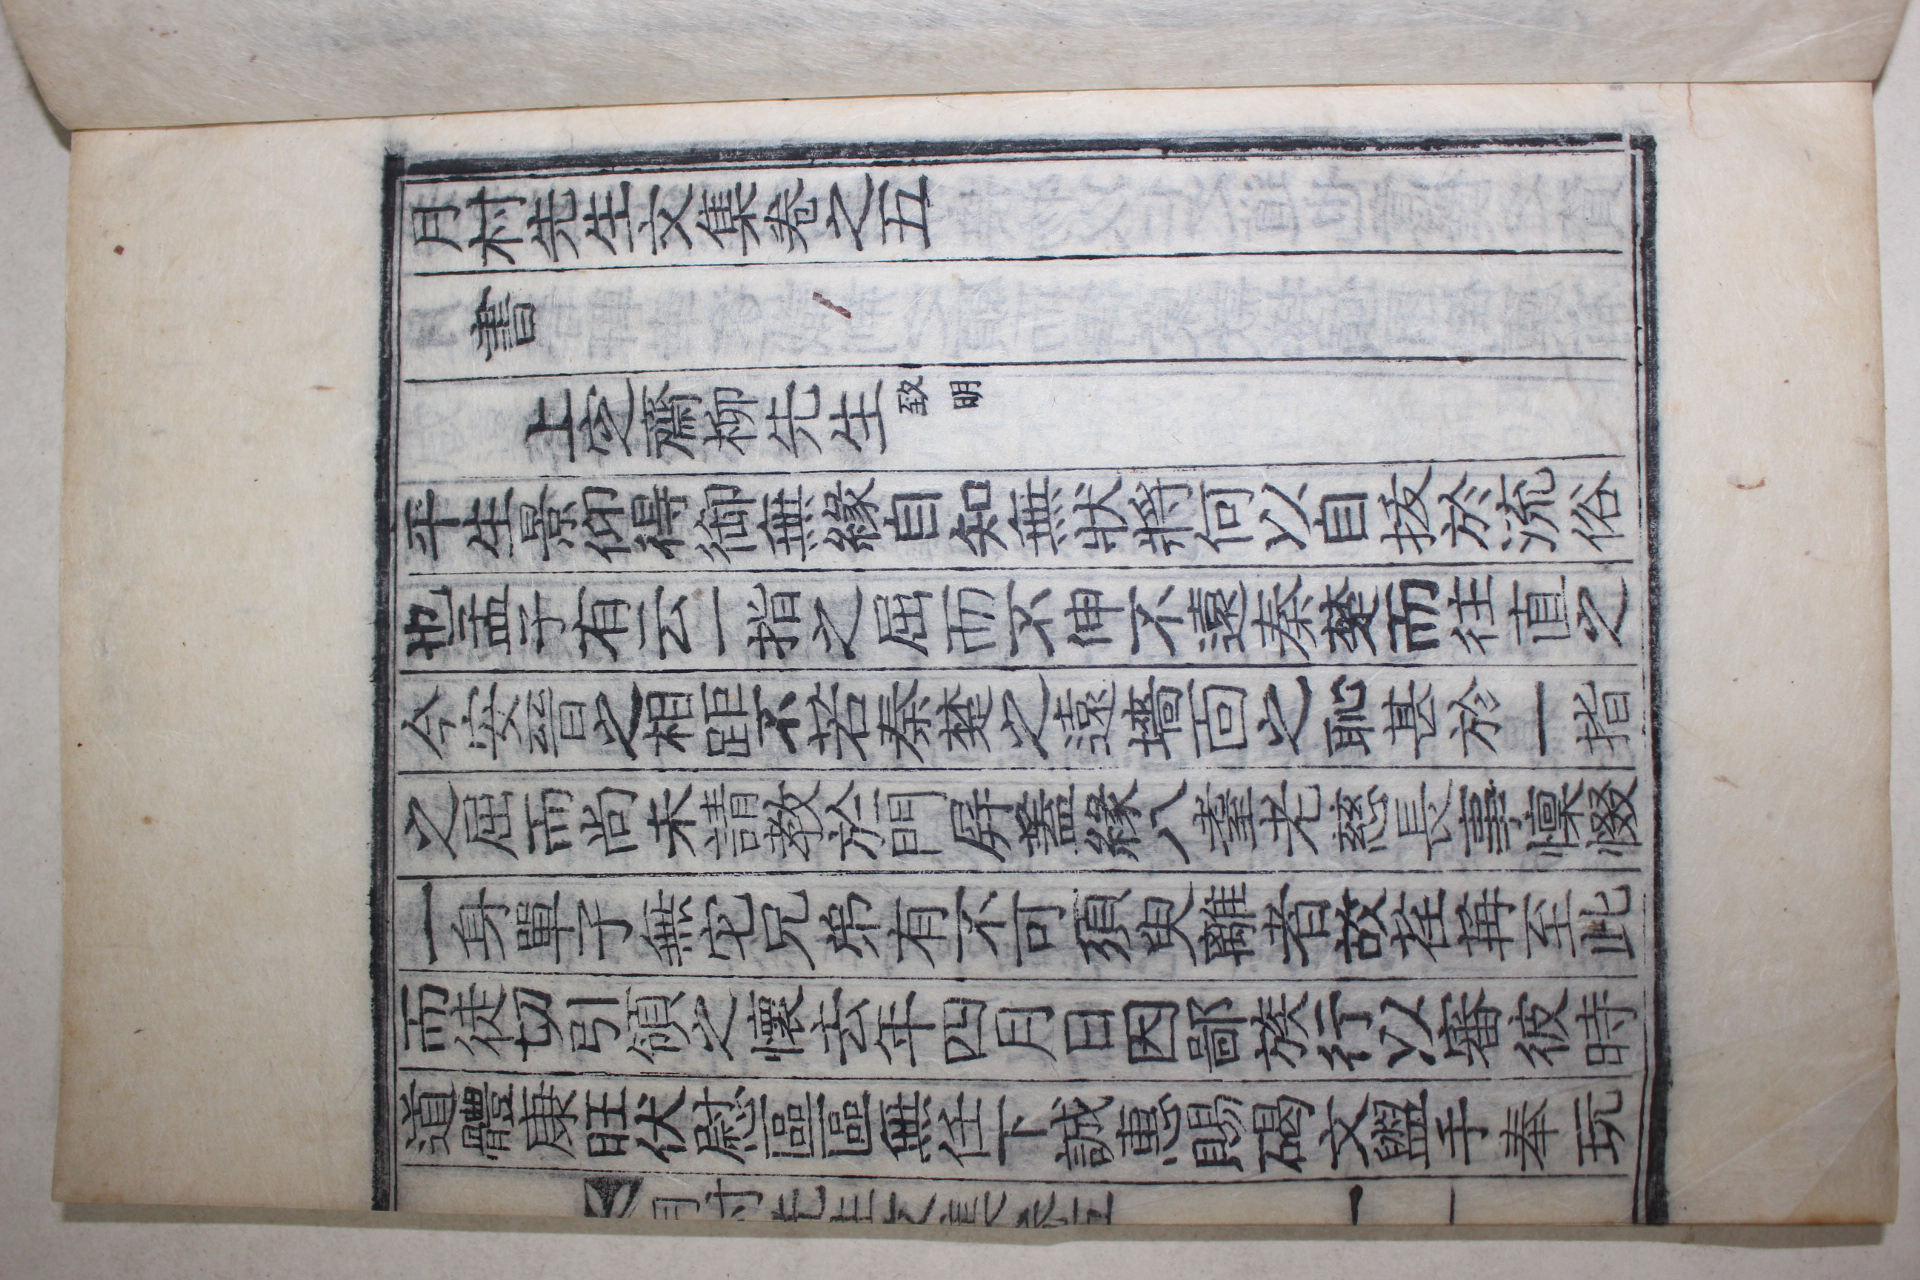 月村先生文集卷之五
書
上定齋柳先生致明
平生景仰得御無緣自知無狀將何以自拔於流俗
也孟子有云一指之屈而不伸不遠秦楚而往直之
今安晉之相距不若秦楚之遠墻面之耻甚於一指
之屈而尚未請教於門屛盖緣八耋老慈長事懍惙
一身單子無它兄弟有不可須臾離者故荏苒至此
而徒切引領之懷去年四月日因鄙族行以審彼時
道體康旺伏慰區區無任下誠惠賜碣文盥手奉玩
月村先生文集卷五 一